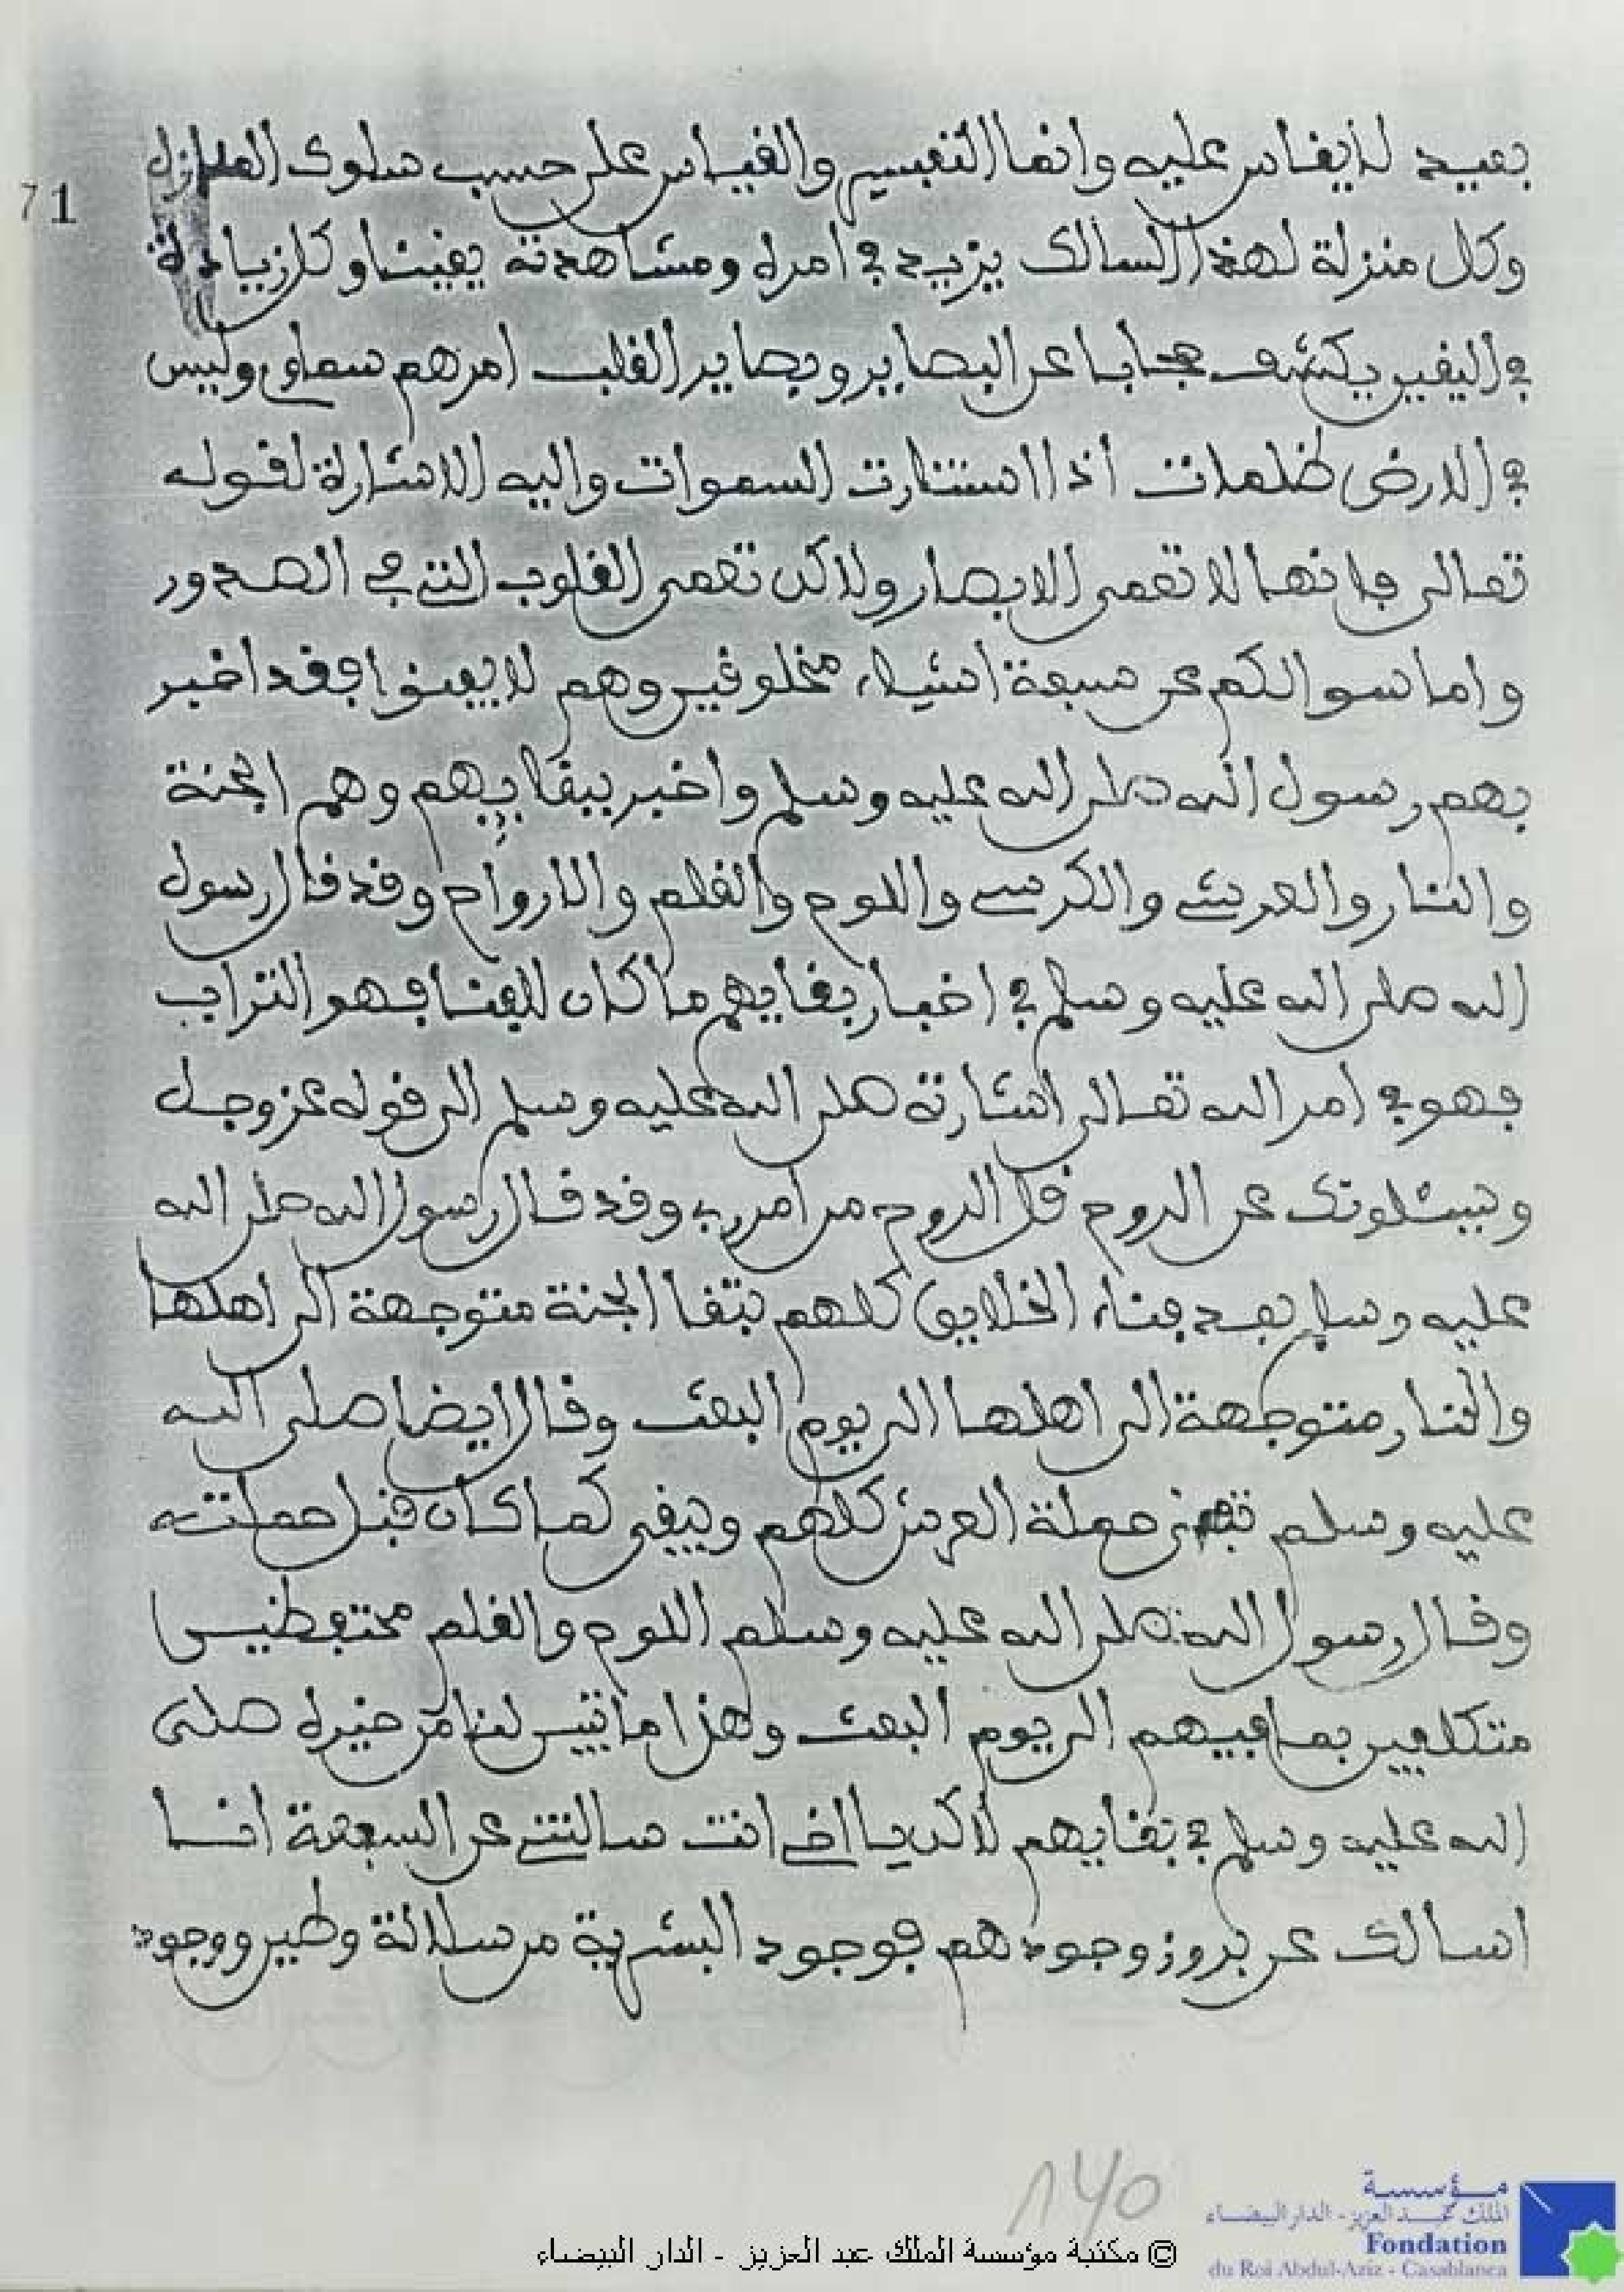 بعيد لا يقاس عليه وانما التفسير والقياس على حسب سلوك المنازل
71
وكل منزلة لهذا السالك يزيد في امره ومشاهدته يقينا وكل زيادة
في اليقين يكشف حجابا عن البصاير وبصاير القلب امرهم سماوي وليس
في الارض ظلمات اذا استنارت السموات واليه الاشارة لقوله
تعالى فانها لا تعمى الابصار ولاكن تعمى القلوب التي في الصدور
واما سوالكم عن سبعة اشياء مخلوقين وهم لا يفنوا فقد اخبر
بهم رسول الله صلى الله عليه وسلم واخبر ببقايهم وهم الجنة
والنار والعرش والكرسي واللوح والقلم والارواح وقد قال رسول
الله صلى الله عليه وسلم في اخبار بقايهم ما كان للفنا فهو التراب
فهو في امر الله تعالى اشارته صلى الله عليه وسلم الى قوله عز وجل
ويسئلونك عن الروح قل الروح من امر ربي وقد قال رسول الله صلى الله
عليه وسلم بعد فناء الخلايق كلهم تبقا الجنة متوجهة الى اهلها
والنار متوجهة الى اهلها الى يوم البعث وقال ايضا صلى الله
عليه وسلم تفنى حملة العرش كلهم ويبقى كما كان قبل حملته
وقال رسول الله صلى الله عليه وسلم اللوح والقلم محتفظين
متكلفين بما فيهم الى يوم البعث وهذا ما تبين لنا من خبره صلى
الله عليه وسلم في بقايهم لاكن يا اخي انت سالتني عن السبعة انا
اسالك عن بروز وجودهم فوجود البشرية من سلالة وطين ووجود
١٤٥
© مكتبة مؤسسة الملك عبد العزيز - الدار البيضاء
مؤسسة
الملك عبد العزيز - الدار البيضاء
Fondation
du Roi Abdul-Aziz - Casablanca